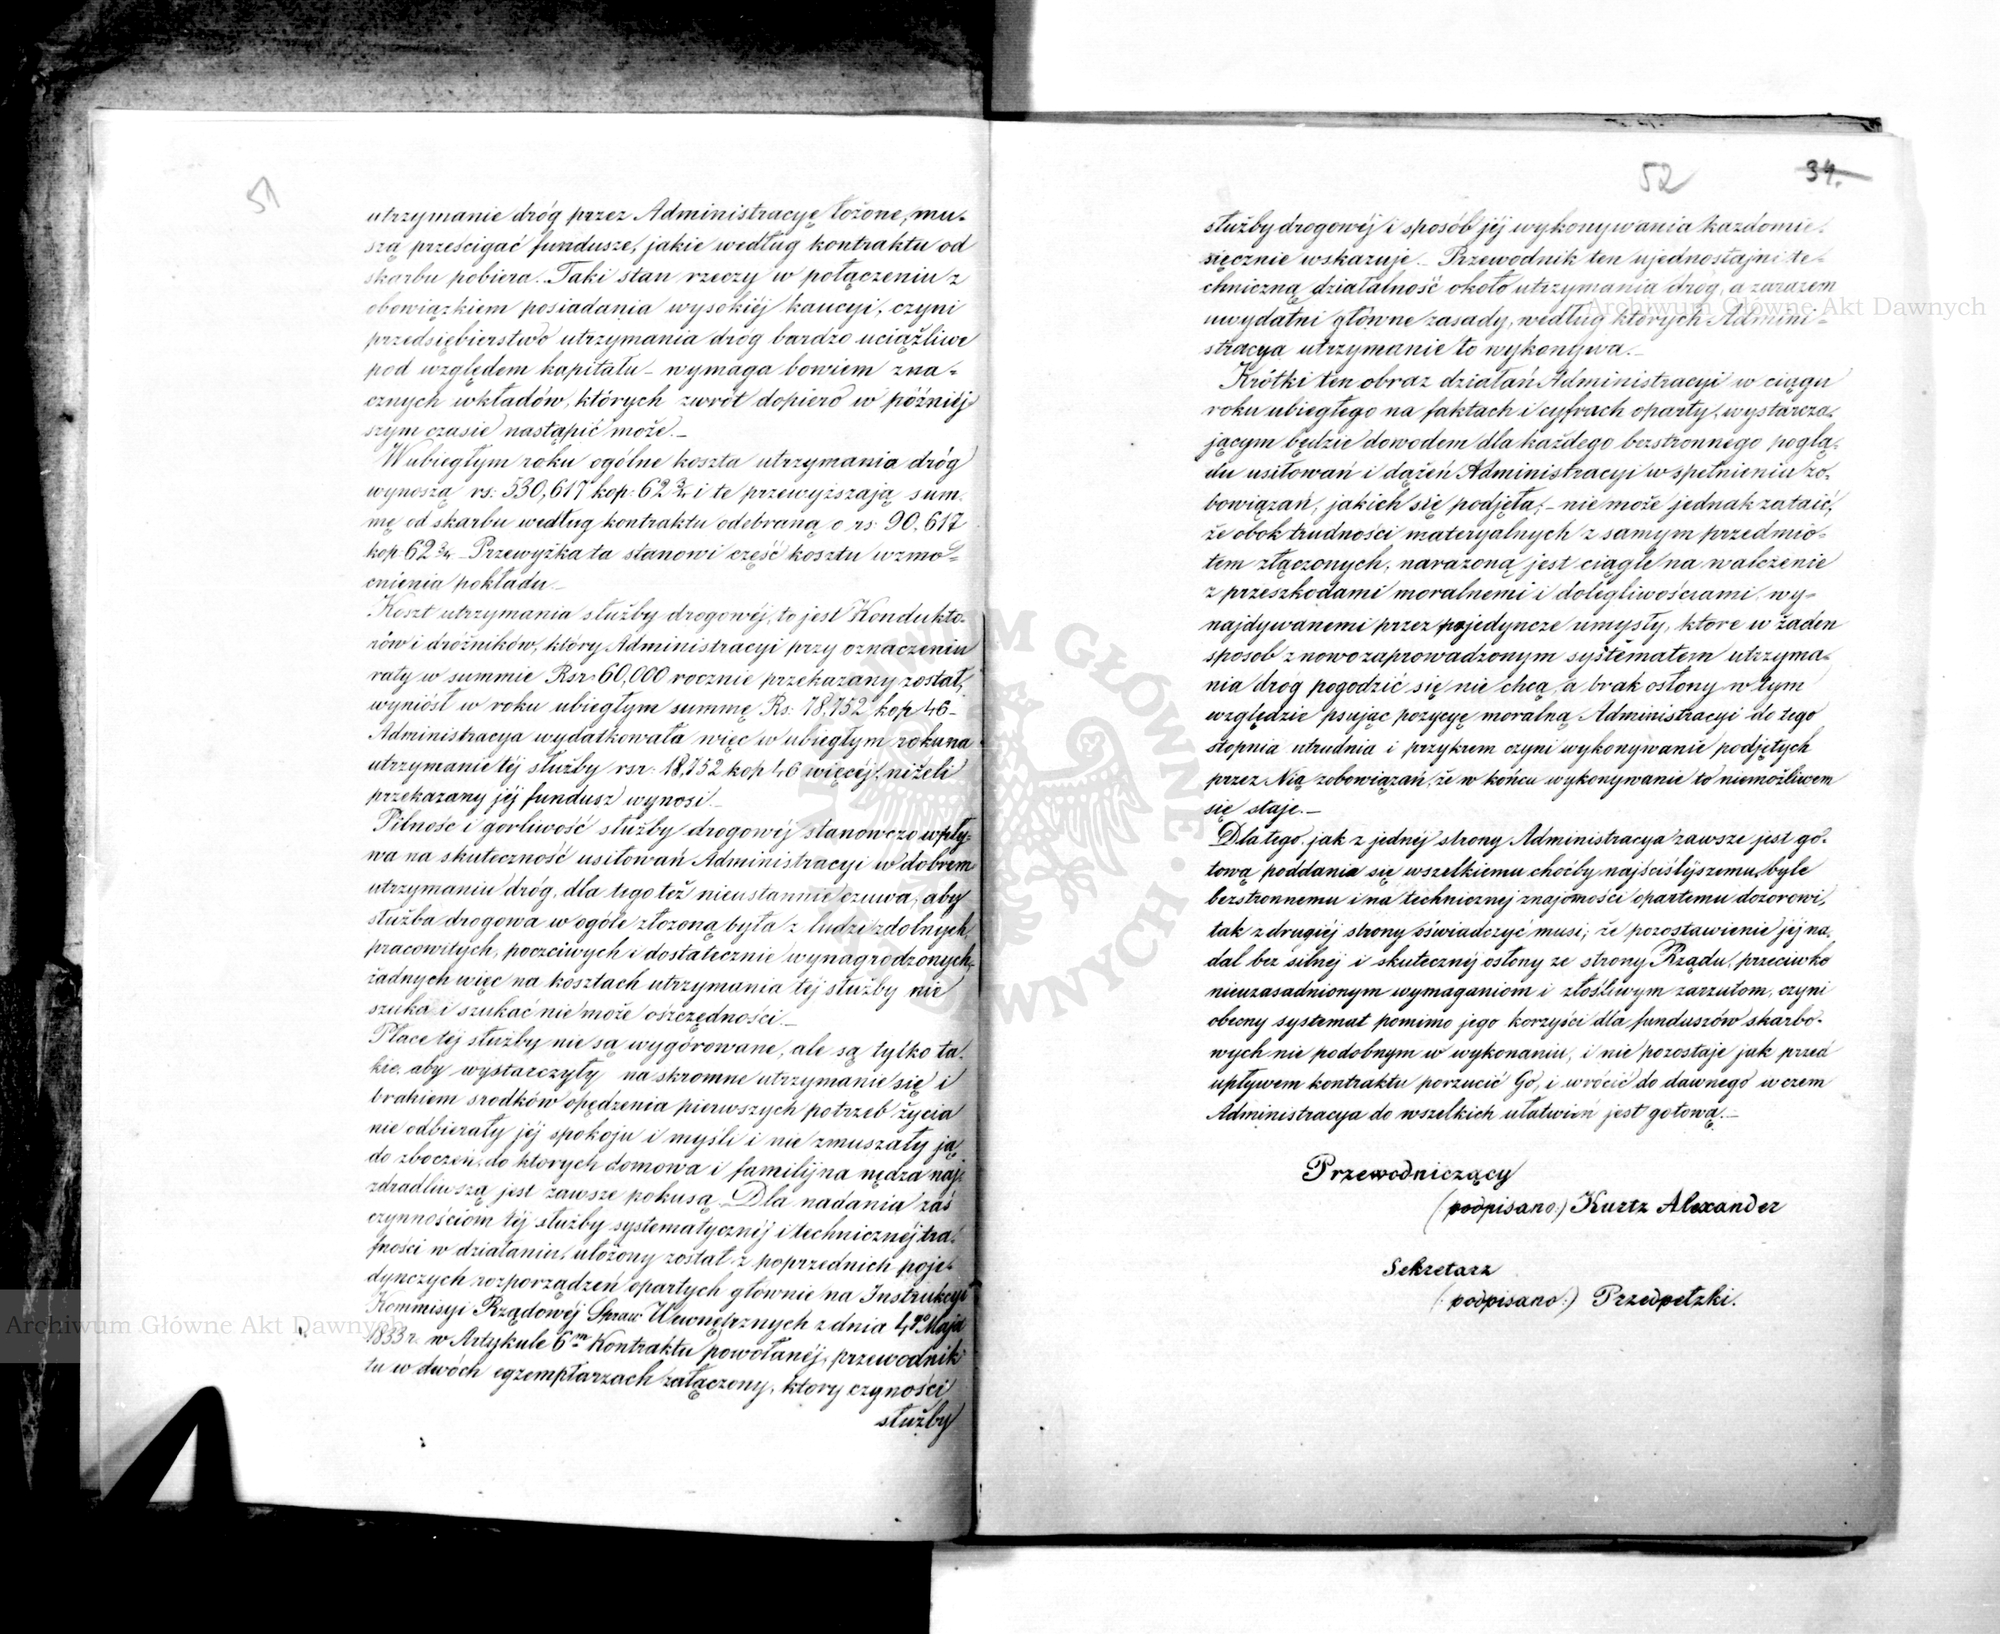 51
utrzymanie dróg przez Administracyę łożone, mu-
szą prześcigać fundusze, jakie według kontraktu od
skarbu pobiera. Taki stan rzeczy w połączeniu z
obowiązkiem posiadania wysokiéj kaucyi, czyni
przedsiębierstwo utrzymania dróg bardzo uciążliwe
pod względem kapitału – wymaga bowiem zna-
cznych wkładów, których zwrot dopiero w późniéj-
szym czasie nastąpić może. –
W ubiegłym roku ogólne koszta utrzymania dróg
wynoszą rs: 530,617 kop: 62 3/4 i te przewyższają sum-
mę od skarbu według kontraktu odebraną o rs: 90.617
kop: 62 3/4 – Przewyżka ta stanowi część kosztu wzmo-
cnienia pokładu –
Koszt utrzymania służby drogowéj, to jest Kondukto-
rów i dróżników, który Administracyi przy oznaczeniu
raty w summie Rsr: 60,000 rocznie przekazany został,
wyniósł w roku ubiegłym summę Rs: 78,752 kop 46 –
Administracya wydatkowała więc w ubiegłym roku na
utrzymanie téj służby rsr: 18,752 kop 46 więcéj, niżeli
przekazany jéj fundusz wynosi –
Pilność i gorliwość służby drogowéj stanowczo wpły-
wa na skuteczność usiłowań Administracyi w dobrem
utrzymaniu dróg, dla tego też nieustannie czuwa, aby
służba drogowa w ogóle złożoną była z ludzi zdolnych,
pracowitych, poczciwych i dostatecznie wynagrodzonych,
żadnych więc na kosztach utrzymania téj służby nie
szuka i szukać nie może oszczędności –
Płace téj służby nie są wygórowane, ale są tylko ta-
kie, aby wystarczyły na skromne utrzymanie się i
brakiem srodków opędzenia pierwszych potrzeb życia
nie odbierały jéj spokoju i myśli i nie zmuszały ją
do zboczeń, do ktorych domowa i familijna nędza naj-
zdradliwszą jest zawsze pokusą. Dla nadania zaś
czynnościom téj służby systematycznéj i technicznéj tra-
fności w działaniu, ułożony został z poprzednich poje-
dynczych rozporządzeń opartych głównie na Instrukcyi
Kommisyi Rządowéj Spraw Wewnętrznych z dnia 4go Maja
1833 r. w Artykule 6m Kontraktu powołanéj, przewodnik
tu w dwóch egzemplarzach załączony, ktory czyności
służby
52 34.
służby drogowéj i sposób jéj wykonywania każdomie-
sięcznie wskazuje. – Przewodnik ten ujednostajni te-
chniczną działalność około utrzymania dróg, a zarazem
uwydatni główne zasady, według których Admini-
stracya utrzymanie to wykonywa. –
Krótki ten obraz działań Administracyi w ciągu
roku ubiegłego na faktach i cyfrach oparty, wystarcza-
jącym będzie dowodem dla każdego bezstronnego poglą-
du usiłowań i dążeń Administracyi w spełnieniu zo-
bowiązań, jakich się podjęła, – nie może jednak zataić,
że obok trudności materyalnych z samym przedmio-
tem złączonych, narażoną jest ciągle na walczenie
z przeszkodami moralnemi i dolegliwościami, wy-
najdywanemi przez pojedyncze umysły, ktore w żaden
sposob z nowo zaprowadzonym systematem utrzyma-
nia dróg pogodzić się nie chcą, a brak osłony w tym
względzie psując pozycyę moralną Administracyi do tego
stopnia utrudnia i przykrem czyni wykonywanie podjętych
przez Nią zobowiązań, że w końcu wykonywanie to niemożliwem
się staje. –
Dla tego, jak z jednéj strony Administracya zawsze jest go-
tową poddania się wszelkiemu choćby najściślijszemu, byle
bezstronnemu i na technicznej znajomości opartemu dozorowi,
tak z drugiéj strony oświadczyć musi, że pozostawienie jéj na-
dal bez silnéj i skutecznéj osłony ze strony Rządu, przeciwko
nieuzasadnionym wymaganiom i złośliwym zarzutom, czyni
obecny systemat pomimo jego korzyści dla funduszów skarbo-
wych nie podobnym w wykonaniu, i nie pozostaje jak przed
upływem kontraktu porzucić Go, i wrócić do dawnego w czem
Administracya do wszelkich ułatwień jest gotową. –
Przewodniczący
(podpisano:) Kurtz Alexander
Sekretarz
(podpisano:) Przedpełzki.
Archiwum Główne Akt Dawnych
Archiwum Główne Akt Dawnych